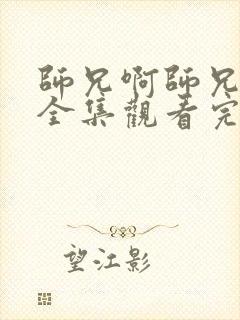 師兄啊師兄
全集觀看完
望江影